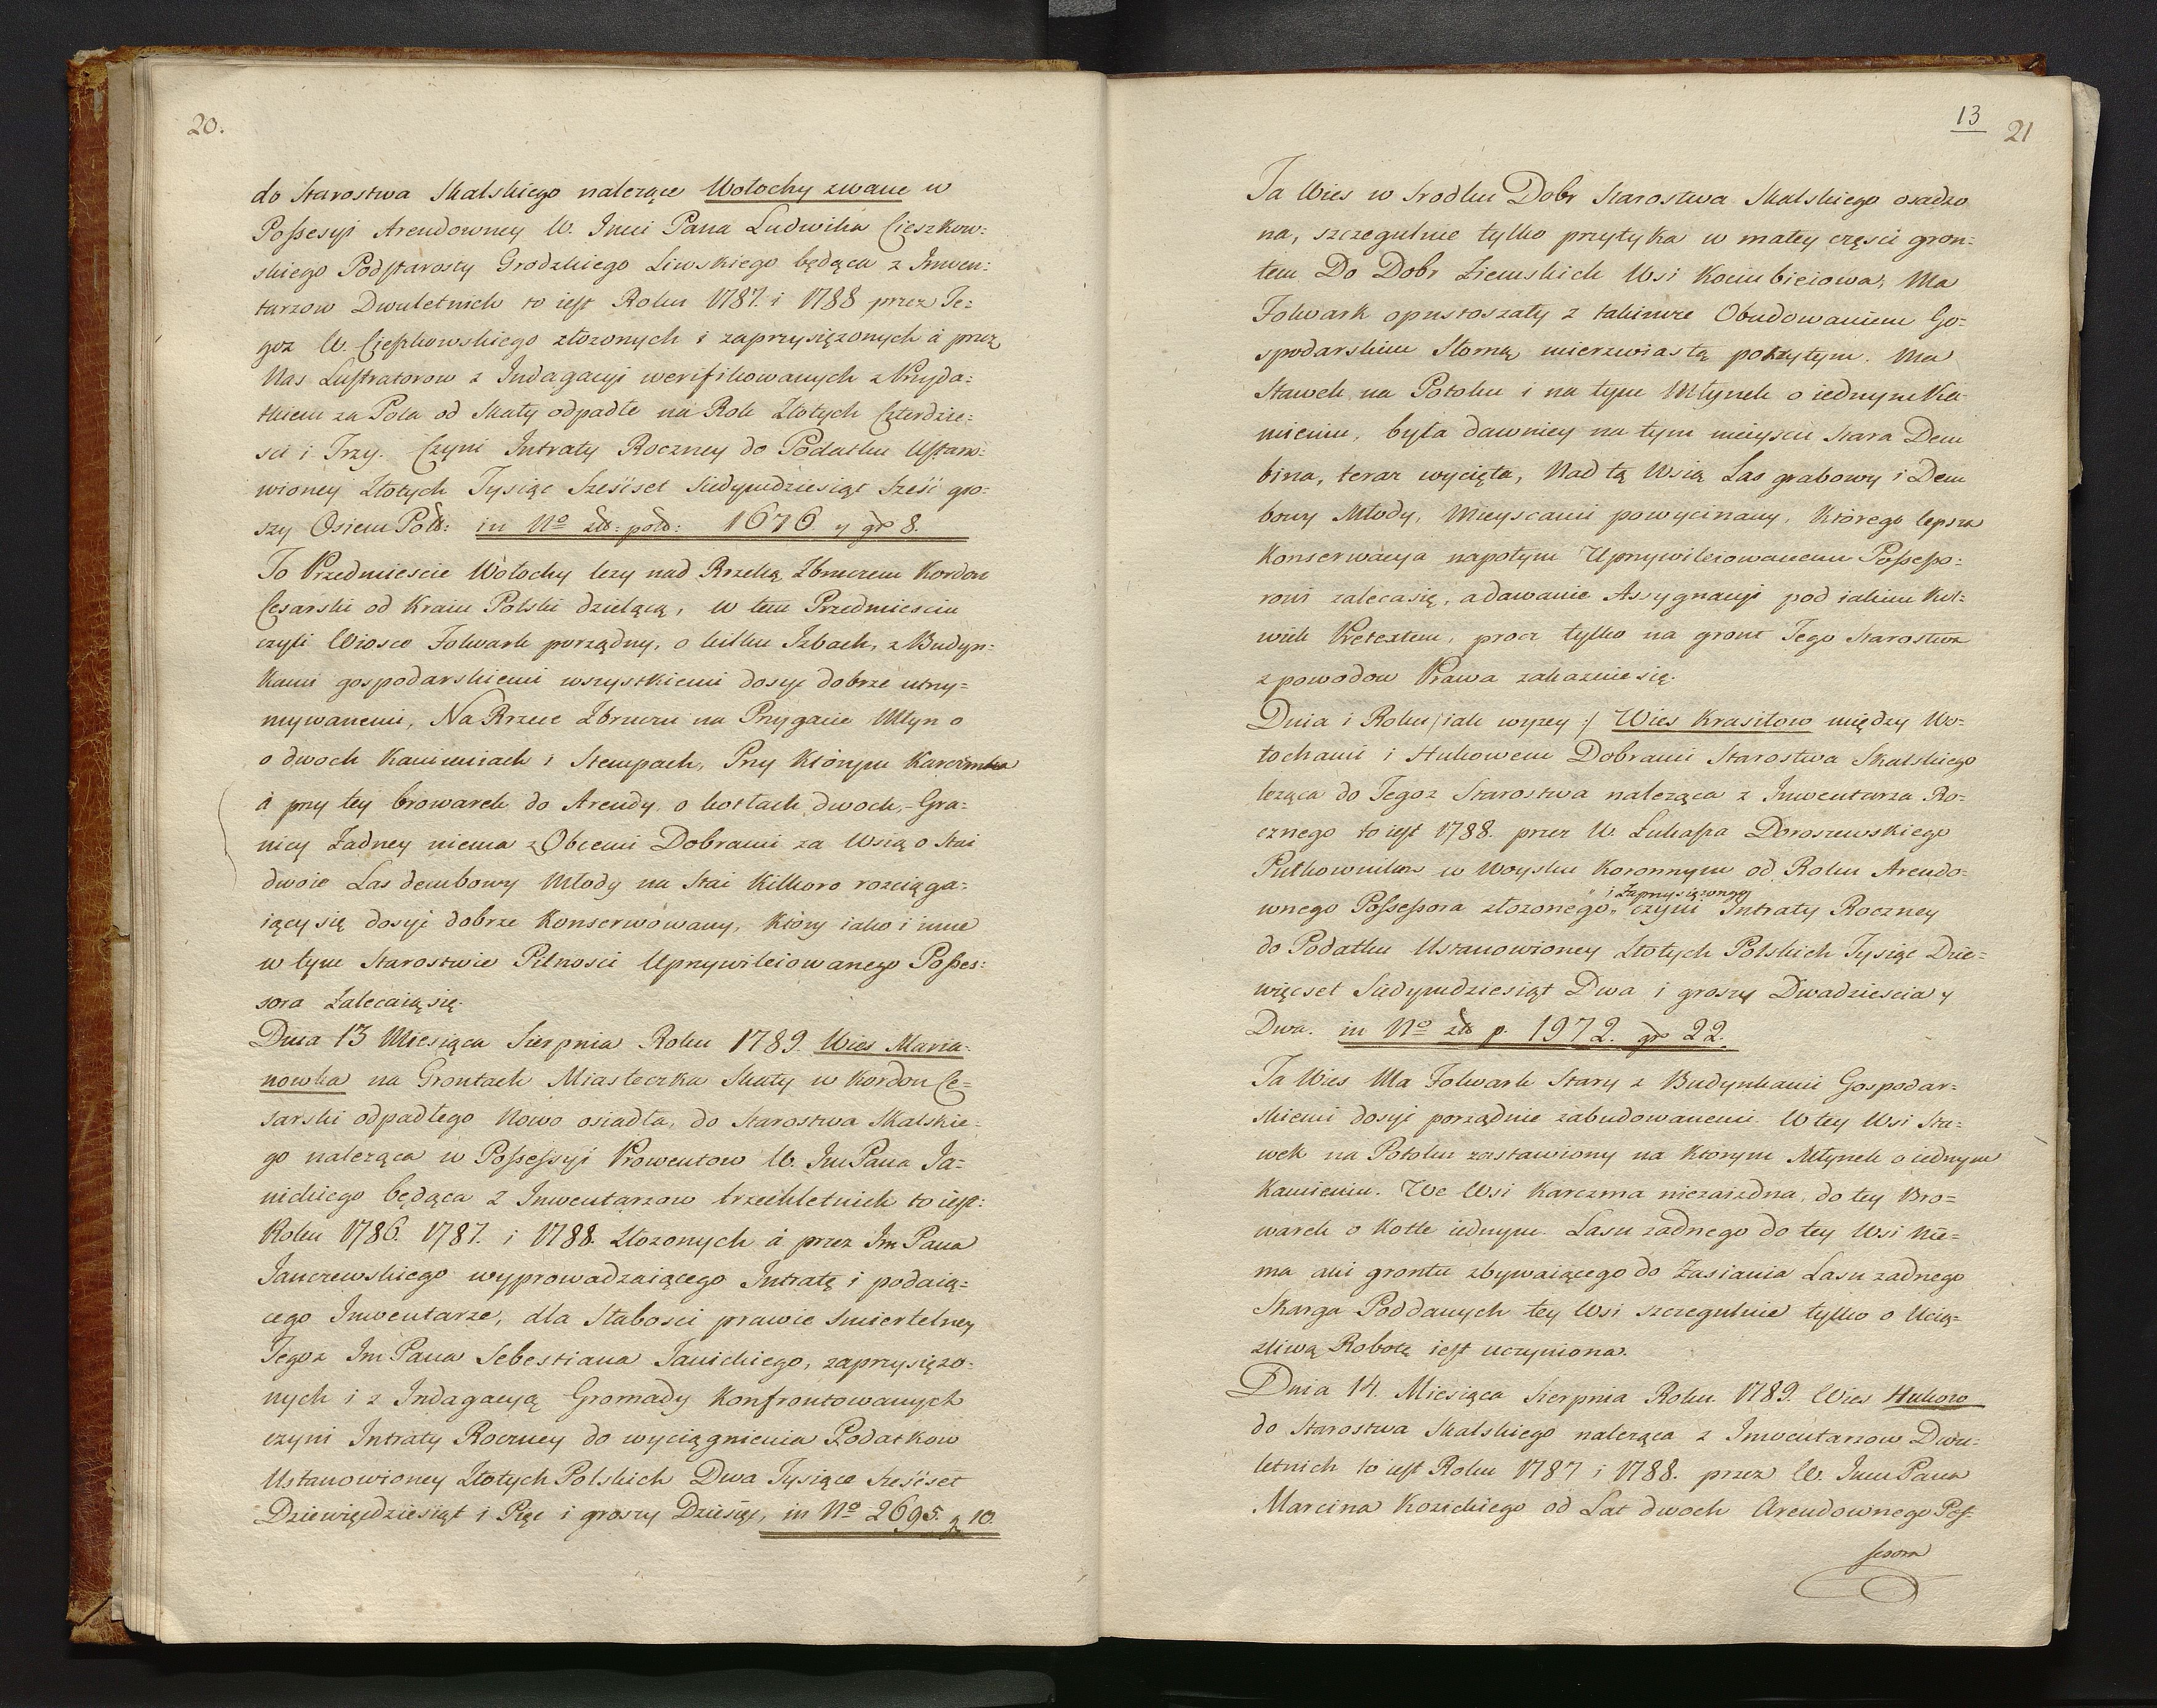 20.
do Starostwa Skalskiego nalezące Wołochy zwane w
Possesyi Arendowney W. Jmci Pana Ludwika Cieszkow:
skiego Podstarosty Grodzkiego Liwskiego będąca z Inwen:
tarzow Dwuletnich to iest Roku 1787. i 1788 przez Te=
goz W. Cieszkowskiego złozonych i zaprzysięzonych á przez
Nas Lustratorow z Indagacyi weryfikowanych z Przyda:
tkiem za Pola od Skały odpadłe na Rok Złotych Czterdzie:
sci i Trzy. Czyni Intraty Roczney do Podatku Ustano:
wioney Złotych Tysiąc Sześćset Siedymdziesiąt Sześć gro:
szy Osiem Pols: in No złł: pols: 1676 y gr 8.
To Przedmiescie Wołochy lezy nad Rzeką Zbruczem Kordon
Cesarski od Kraiu Polski dzielącą, w tem Przedmiesciu
czyli Wiosce Folwark porządny, o kilku Izbach, z Budyn:
kami gospodarskiemi wszystkiemi dosyć dobrze utrzy=
mywanemi, Na Rzece Zbruczu na Przygacie Młyn o
o dwoch Kamieniach i Stempach, Przy Ktorym Karczmka
à przy tey browarek do Arendy o kotłach dwoch,- Gra:
nicy Żadney niema z Obcemi Dobrami za Wsią o Stai
dwoie Las dembowy Młody na Stai Kilkoro rozciąga:
iący się dosyć dobrze Konserwowany, Ktory iako i inne
w tym Starostwie Pilnosci Uprzywileiowanego Posses:
sora Zalecaią się.
Dnia 13 Miesiąca Sierpnia Roku 1789. Wies Maria:
nowka na Grontach Miasteczka Skały w Kordon Ce=
sarski odpadłego Nowo osiadła, do Starostwa Skalskie=
go naleząca w Possessyi Prowentow W. Jm Pana Ja=
nickiego będąca z Inwentarzow trzechletnich to iest:
Roku 1786. 1787. i 1788. Złozonych á przez Jm Pana
Janczewskiego wyprowadzaiącego Intratę i podaią=
cego Inwentarze, dla Słabosci prawie Smiertelney
Tegoz Jm Pana Sebestiana Janickiego, zaprzysięzo:
nych i z Indagacyą Gromady Konfrontowanych
czyni Intraty Roczney do wyciągnienia Podatkow
Ustanowioney Złotych Polskich Dwa Tysiące Sześćset
Dziewięćdziesiąt i Pięć i groszy Dziesięć, in No 2695. g 10
13
21
Ta Wies w Srodku Dobr Starostwa Skalskiego osadzo
na, szczegulnie tylko przytyka w małey części gron:
tem Do Dobr Ziemskich Wsi Kociubiciowa, Ma
Folwark opustoszały z takimże Obudowaniem Go:
spodarskim Słomą mierzwiastą pokrytym. Ma
Stawek na Potoku i na tym Młynek o iednym Ka
mieniu, była dawniey na tym mieyscu Stara Dem
bina, teraz wycięta, Nad tą Wsią Las grabowy i Dem
bowy Młody, Mieyscami powycinany, Którego lepsza
Konserwacya napotym Uprzywileiowanemu Possesso:
rowi zaleca się, a dawanie Assygnacyi pod iakim Kol=
wiek Pretextem, procz tylko na gront Tego Starostwa
z powodow Prawa zakazuie się.
Dnia i Roku /: iak wyzey :/ Wies Krasitow między Wo=
łochami i Hukowem Dobrami Starostwa Skalskiego
leząca do Tegoz Starostwa naleząca z Inwentarza Ro=
cznego to iest 1788. przez W. Łukasza Doroszewskiego
Pułkownika w Woysku Koronnym od Roku Arendo:
" i Zaprzysięzonego
wnego Possessora złozonego " czyni Intraty Roczney
do Podatku Ustanowioney Złotych Polskich Tysiąc Dzie=
więćset Siedymdziesiąt Dwa i groszy Dwadziescia y
Dwa. in No złł p. 1972. gr 22.
Ta Wies Ma Folwark Stary z Budynkami Gospodar=
skiemi dosyć porządnie zabudowanemi. W tey Wsi Sta=
wek na Potoku zastawiony na Ktorym Młynek o iednym
Kamieniu. We Wsi Karczma niezaiezdna, do tey Bro=
warek o Kotle iednym. Lasu zadnego do tey Wsi Nie=
ma ani grontu zbywaiącego do Zasiania Lasu zadnego
Skarga Poddanych tey Wsi szczegulnie tylko o Ucią=
zliwą Robotę iest uczyniona.
Dnia 14. Miesiąca Sierpnia Roku 1789. Wies Hukow
do Starostwa Skalskiego naleząca z Inwentarzow Dwu=
letnich to iest Roku 1787 i 1788. przez W. Jmc Pana
Marcina Kozickiego od Lat dwoch Arendownego Pos=
sesora